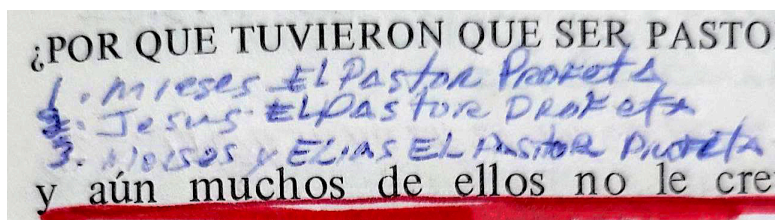 ¿POR QUE TUVIERON QUE SER PASTO
1. Mieses EL Pastor Profeta
2. Jesus EL Pastor Profeta
3. Moises y ELias EL Pastor Profeta
y aún muchos de ellos no le cre